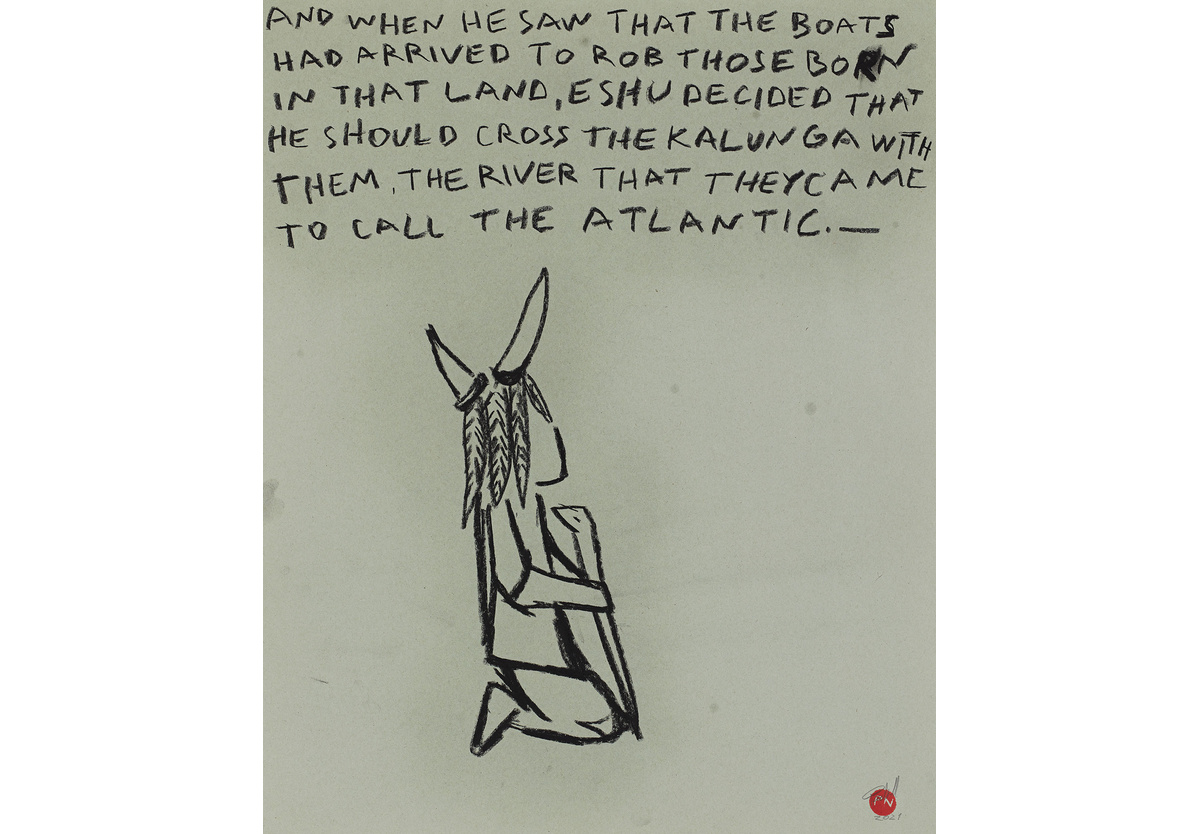 AND WHEN HE SAW THAT THE BOATS
HAD ARRIVED TO ROB THOSE BORN
IN THAT LAND, ESHU DECIDED THAT
HE SHOULD CROSS THE KALUNGA WITH
THEM, THE RIVER THAT THEY CAME
TO CALL THE ATLANTIC.—
PN
2021